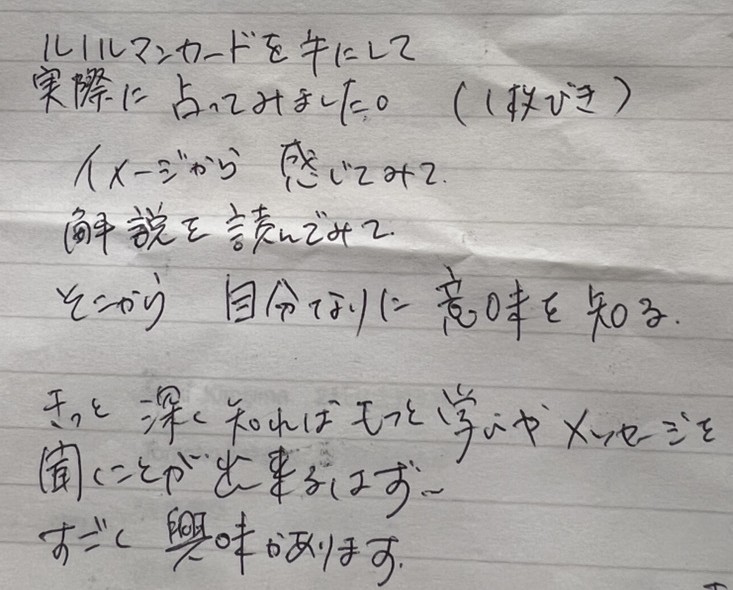 ルノルマンカードを手にして
実際に占ってみました。 (1枚びき)
イメージから 感じてみて.
解説を読んでみて.
そこから 自分なりに 意味を知る.
きっと 深く知ればもっと学びや メッセージを
聞くことが出来るはず〜
すごく 興味があります.